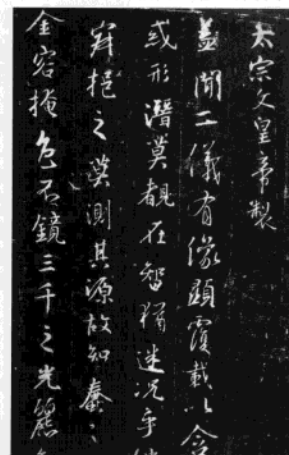 太宗文皇帝製
蓋聞二儀有像顯覆載以含
或形潛莫覩在智猶迷况乎
寂挹之莫測其源故知蠢〻
金容掩色不鏡三千之光麗